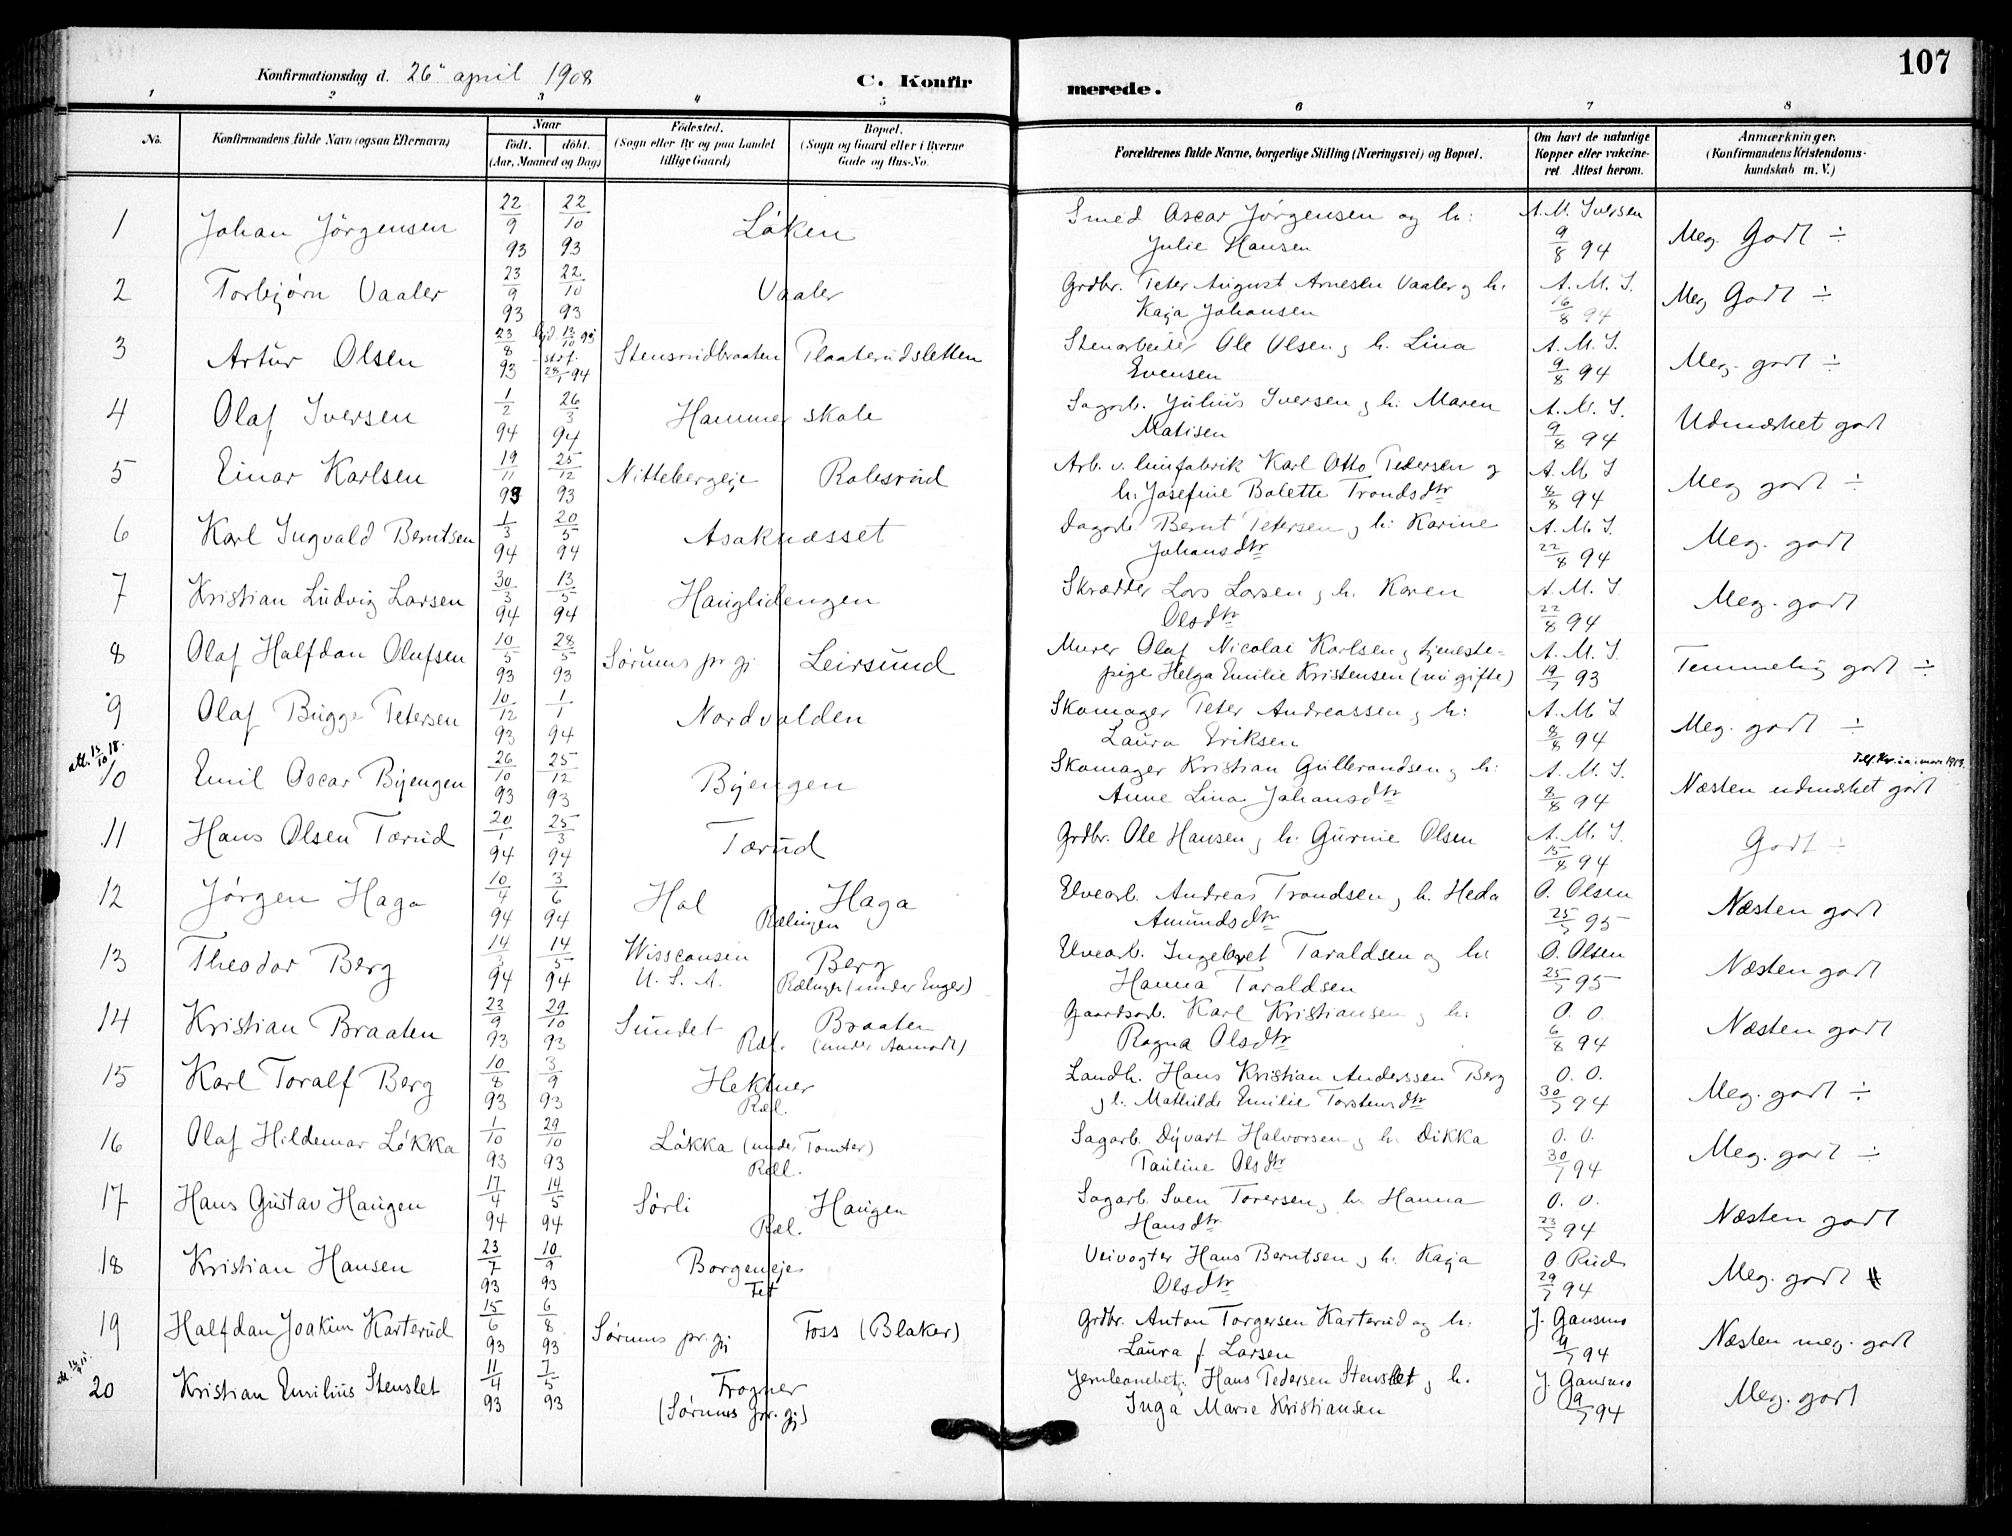 107
Konfirmationsdag d. 26 april 1908
C. Konfirmerede.
1 2 3 4 5 6 7 8
No. | Konfirmandens fulde Navn (ogsaa Efternavn) | Naar født. døbt. (Aar, Maaned og Dag) | Fødested. (Sogn eller By og paa Landet tillige Gaard) | Bopæl. (Sogn og Gaard eller i Byerne Gade og Hus-No. | Forældrenes fulde Navne, borgerlige Stilling (Næringsvei) og Bopæl. | Om havt de naturlige Kopper eller vakcineret Attest herom. | Anmærkninger. (Konfirmandens Kristendomskundskab m. V.)
1 Johan Jørgensen 22/9 93 22/10 93 Løken Smed Oscar Jørgensen og h: Julie Hansen A. M. Iversen 9/8 94 Meg. Godt ÷
2 Torbjørn Vaaler 23/9 93 22/10 93 Vaaler Grdbr. Peter August Arnesen Vaaler og h. Kaja Johansen A. M. I. 16/8 94 Meg Godt ÷
3 Artur Olsen 23/8 93 13/10 93 28/1 94 Stensrudbraaten Plaaterudsletten Stenarbeider Ole Olsen, h. Lina Evensen A. M. I. 9/8 94 Meg. godt ÷
4 Olaf Iversen 1/2 94 26/3 94 Hammer skole Sagarb. Julius Iversen, h. Maren Matisen A. M. I. 9/8 94 Udmærket godt
5 Einar Karlsen 19/11 93 25/12 93 Nittebergeje Rolesrud Arb. v. limfabrik Karl Otto Pedersen og h. Josefine Bolette Trondsdtr A. M. I 8/8 94 Meg godt ÷
6 Karl Ingvald Berntsen 1/3 94 20/5 94 Asaknæsset Dagarb. Bernt Petersen, h: Karine Johansdtr A. M. I. 22/8 94 Meg. godt
7 Kristian Ludvig Larsen 30/3 94 13/5 94 Hauglidengen Skrædder Lars Larsen, h. Karen Olsdtr A. M. I 22/8 94 Meg. godt
8 Olaf Halfdan Olufsen 10/5 93 28/5 93 Sørums pr.gj. Leirsund Murer Olaf Nicolai Karlsen, tjenestepige Helga Emilie Kristensen (nu gifte) A. M. I. 19/7 93 Temmelig godt ÷
9 Olaf Bugge Petersen 10/12 93 1/1 94 Nordvolden Skomager Peter Andreassen, h: Laura Eriksen A. M. I 8/8 94 Meg. godt ÷
att. 15/10 18. 10 Emil Oscar Byengen 26/10 93 25/12 93 Byengen Skomager Kristian Gulbrandsen, h: Anne Lina Johansdtr A. M. I. 8/8 94 Næsten udmærket godt
11 Hans Olsen Tærud 20/1 94 25/3 94 Tærud Grdbr. Ole Hansen, h. Gurine Olsen A. M. I. 15/8 94 Godt ÷
12 Jørgen Haga 10/4 94 3/6 94 Hol Haga Rælingen Elvearb. Andreas Trondsen, h. Heda Amundsdtr O. Olsen 25/7 95 Næsten godt
13 Theodor Berg 14/3 94 14/5 94 Wisscousin U. S. A. Berg Rælingn (under Enger) Elvearb. Ingebret Taraldsen og h: Hanna Taraldsen O. Olsen 25/7 95 Næsten godt
14 Kristian Braaten 23/9 93 29/10 93 Sundet Braaten Ræl. (under Aamodt) Gaardsarb. Karl Kristiansen, h: Ragna Olsdtr O. O. 6/8 94 Næsten godt
15 Karl Toralf Berg 10/8 93 3/9 93 Hektner Ræl. Landh. Hans Kristian Anderssen Berg , h. Mathilde Emilie Torstensdtr O. O. 30/7 94 Meg. godt ÷
16 Olaf Hildemar Løkka 1/10 93 29/10 93 Løkka (under Tomter) Ræl. Sagarb. Dyvart Halvorsen, h. Dikka Pauline Olsdtr O. O. 30/7 94 Meg. godt ÷
17 Hans Gustav Haugen 17/4 94 14/5 94 Sørli Haugen Ræl. Sagarb. Sven Torersen, h. Hanna Hansdtr O. O. 23/7 94 Næsten godt
18 Kristian Hansen 23/7 93 10/9 93 Borgeneje Fet Veivogter Hans Berntsen, h. Kaja Olsdtr O. Rud 29/7 94 Meg. godt
19 Halfdan Joakim Karterud 15/6 93 6/8 93 Sørums pr.gj. Foss (Blaker) Grdbr. Anton Torgersen Karterud og h. Laura f Larsen J. Gansmo 9/7 94 Næsten meg. godt
20 Kristian Emilius Stenslet 11/4 93 7/5 93 Frogner (Sørums pr. gj) Jernbanebet. Hans Pedersen Stenslet, h. Inga Marie Kristiansen J. Gansmo 9/7 94 Meg. godt